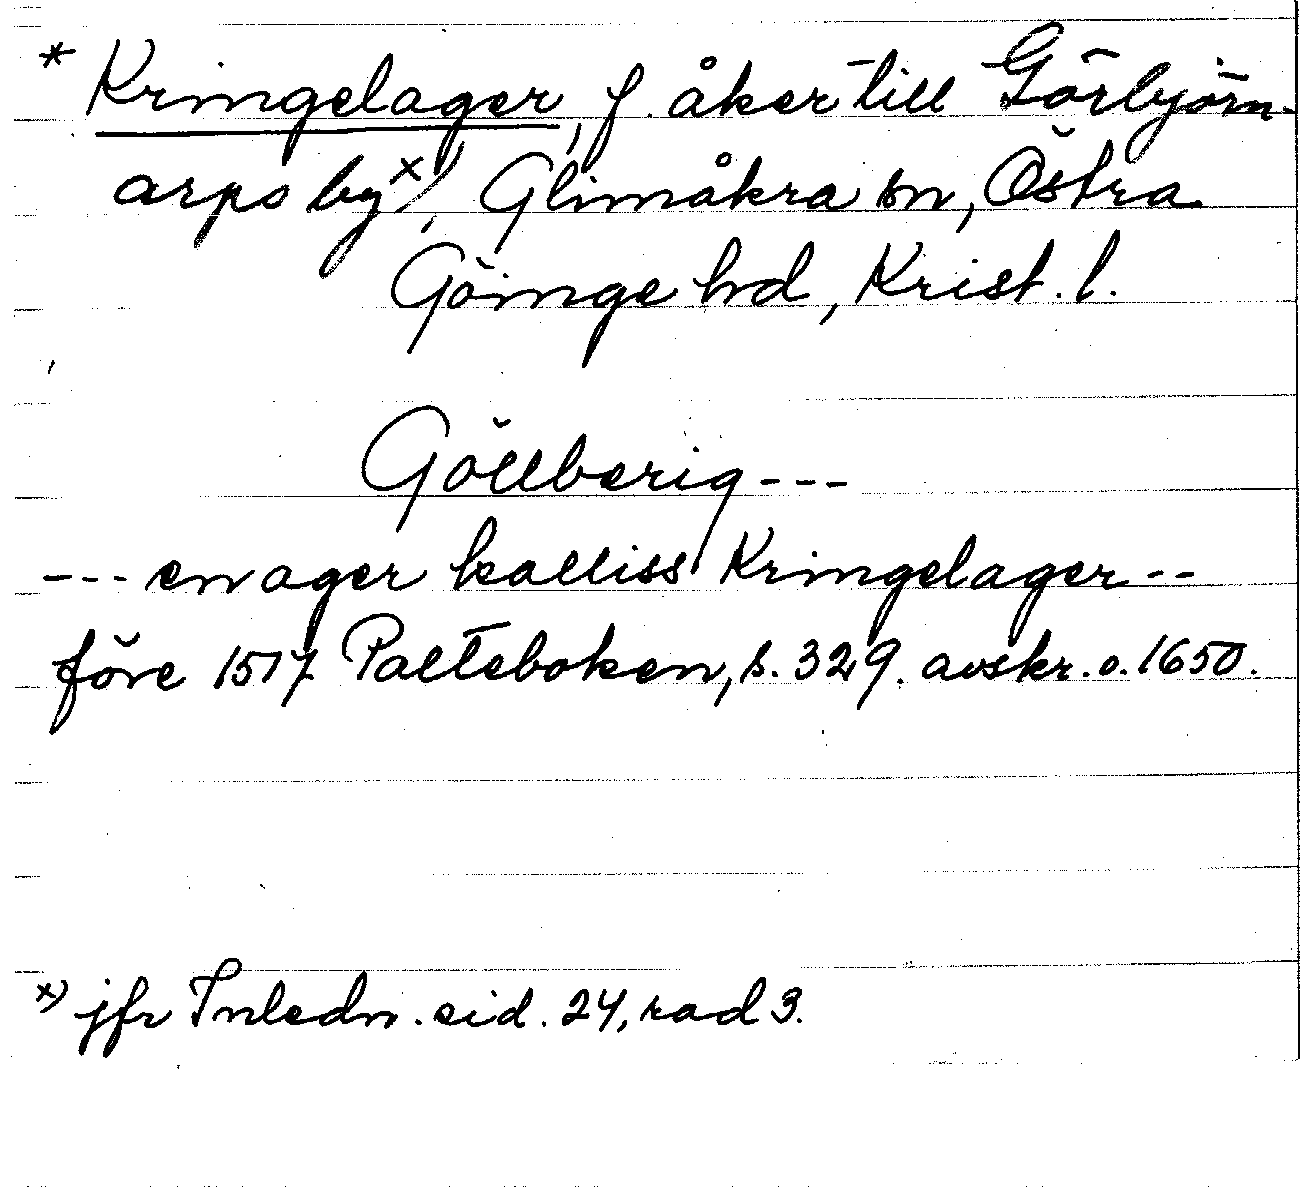 * Kringelager, f. åker till Görbjörn-
arps by x), Glimåkra sn, Östra
Göinge hd, Krist. l.
Göllberig ---
--- en ager kalliss Kringelager --
före 1517 Palteboken, s. 329. avskr. o. 1650.
x) jfr Inledn. sid. 24, rad 3.